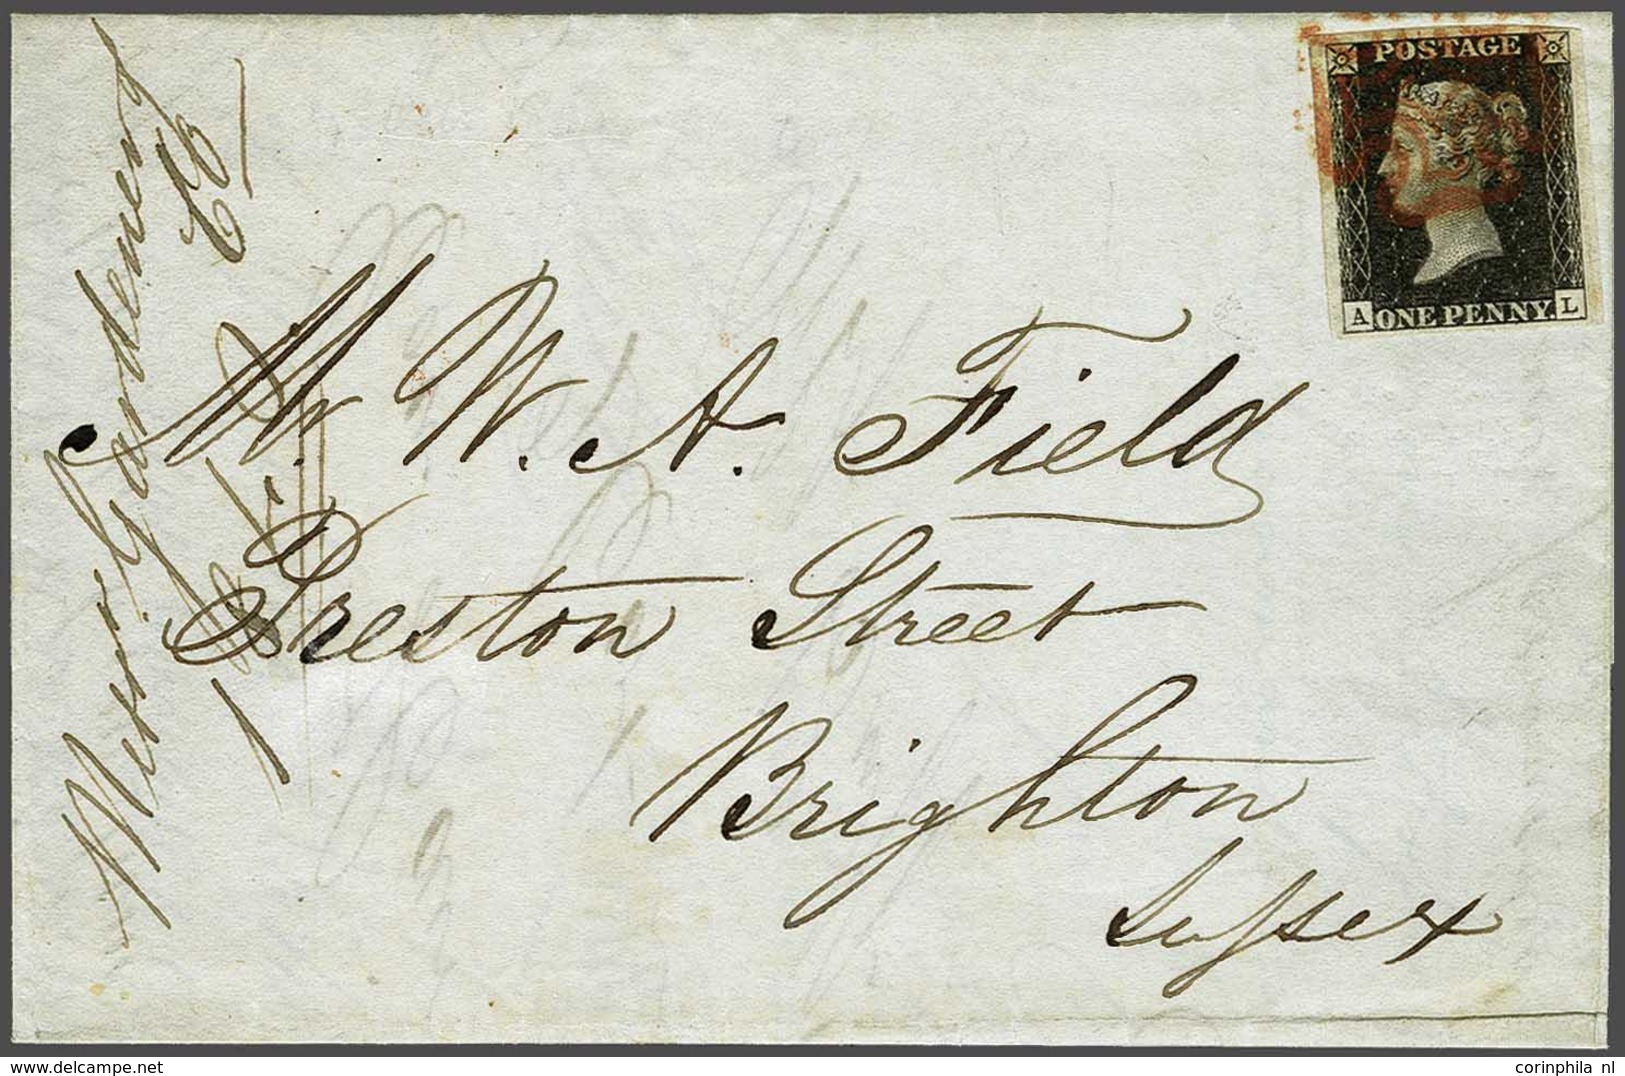 POSTAGE
A ONE PENNY L
Mr. W. A. Field
Preston Street
Brighton
Sussex
Gardening
www.delcampe.net
corinphila_nl